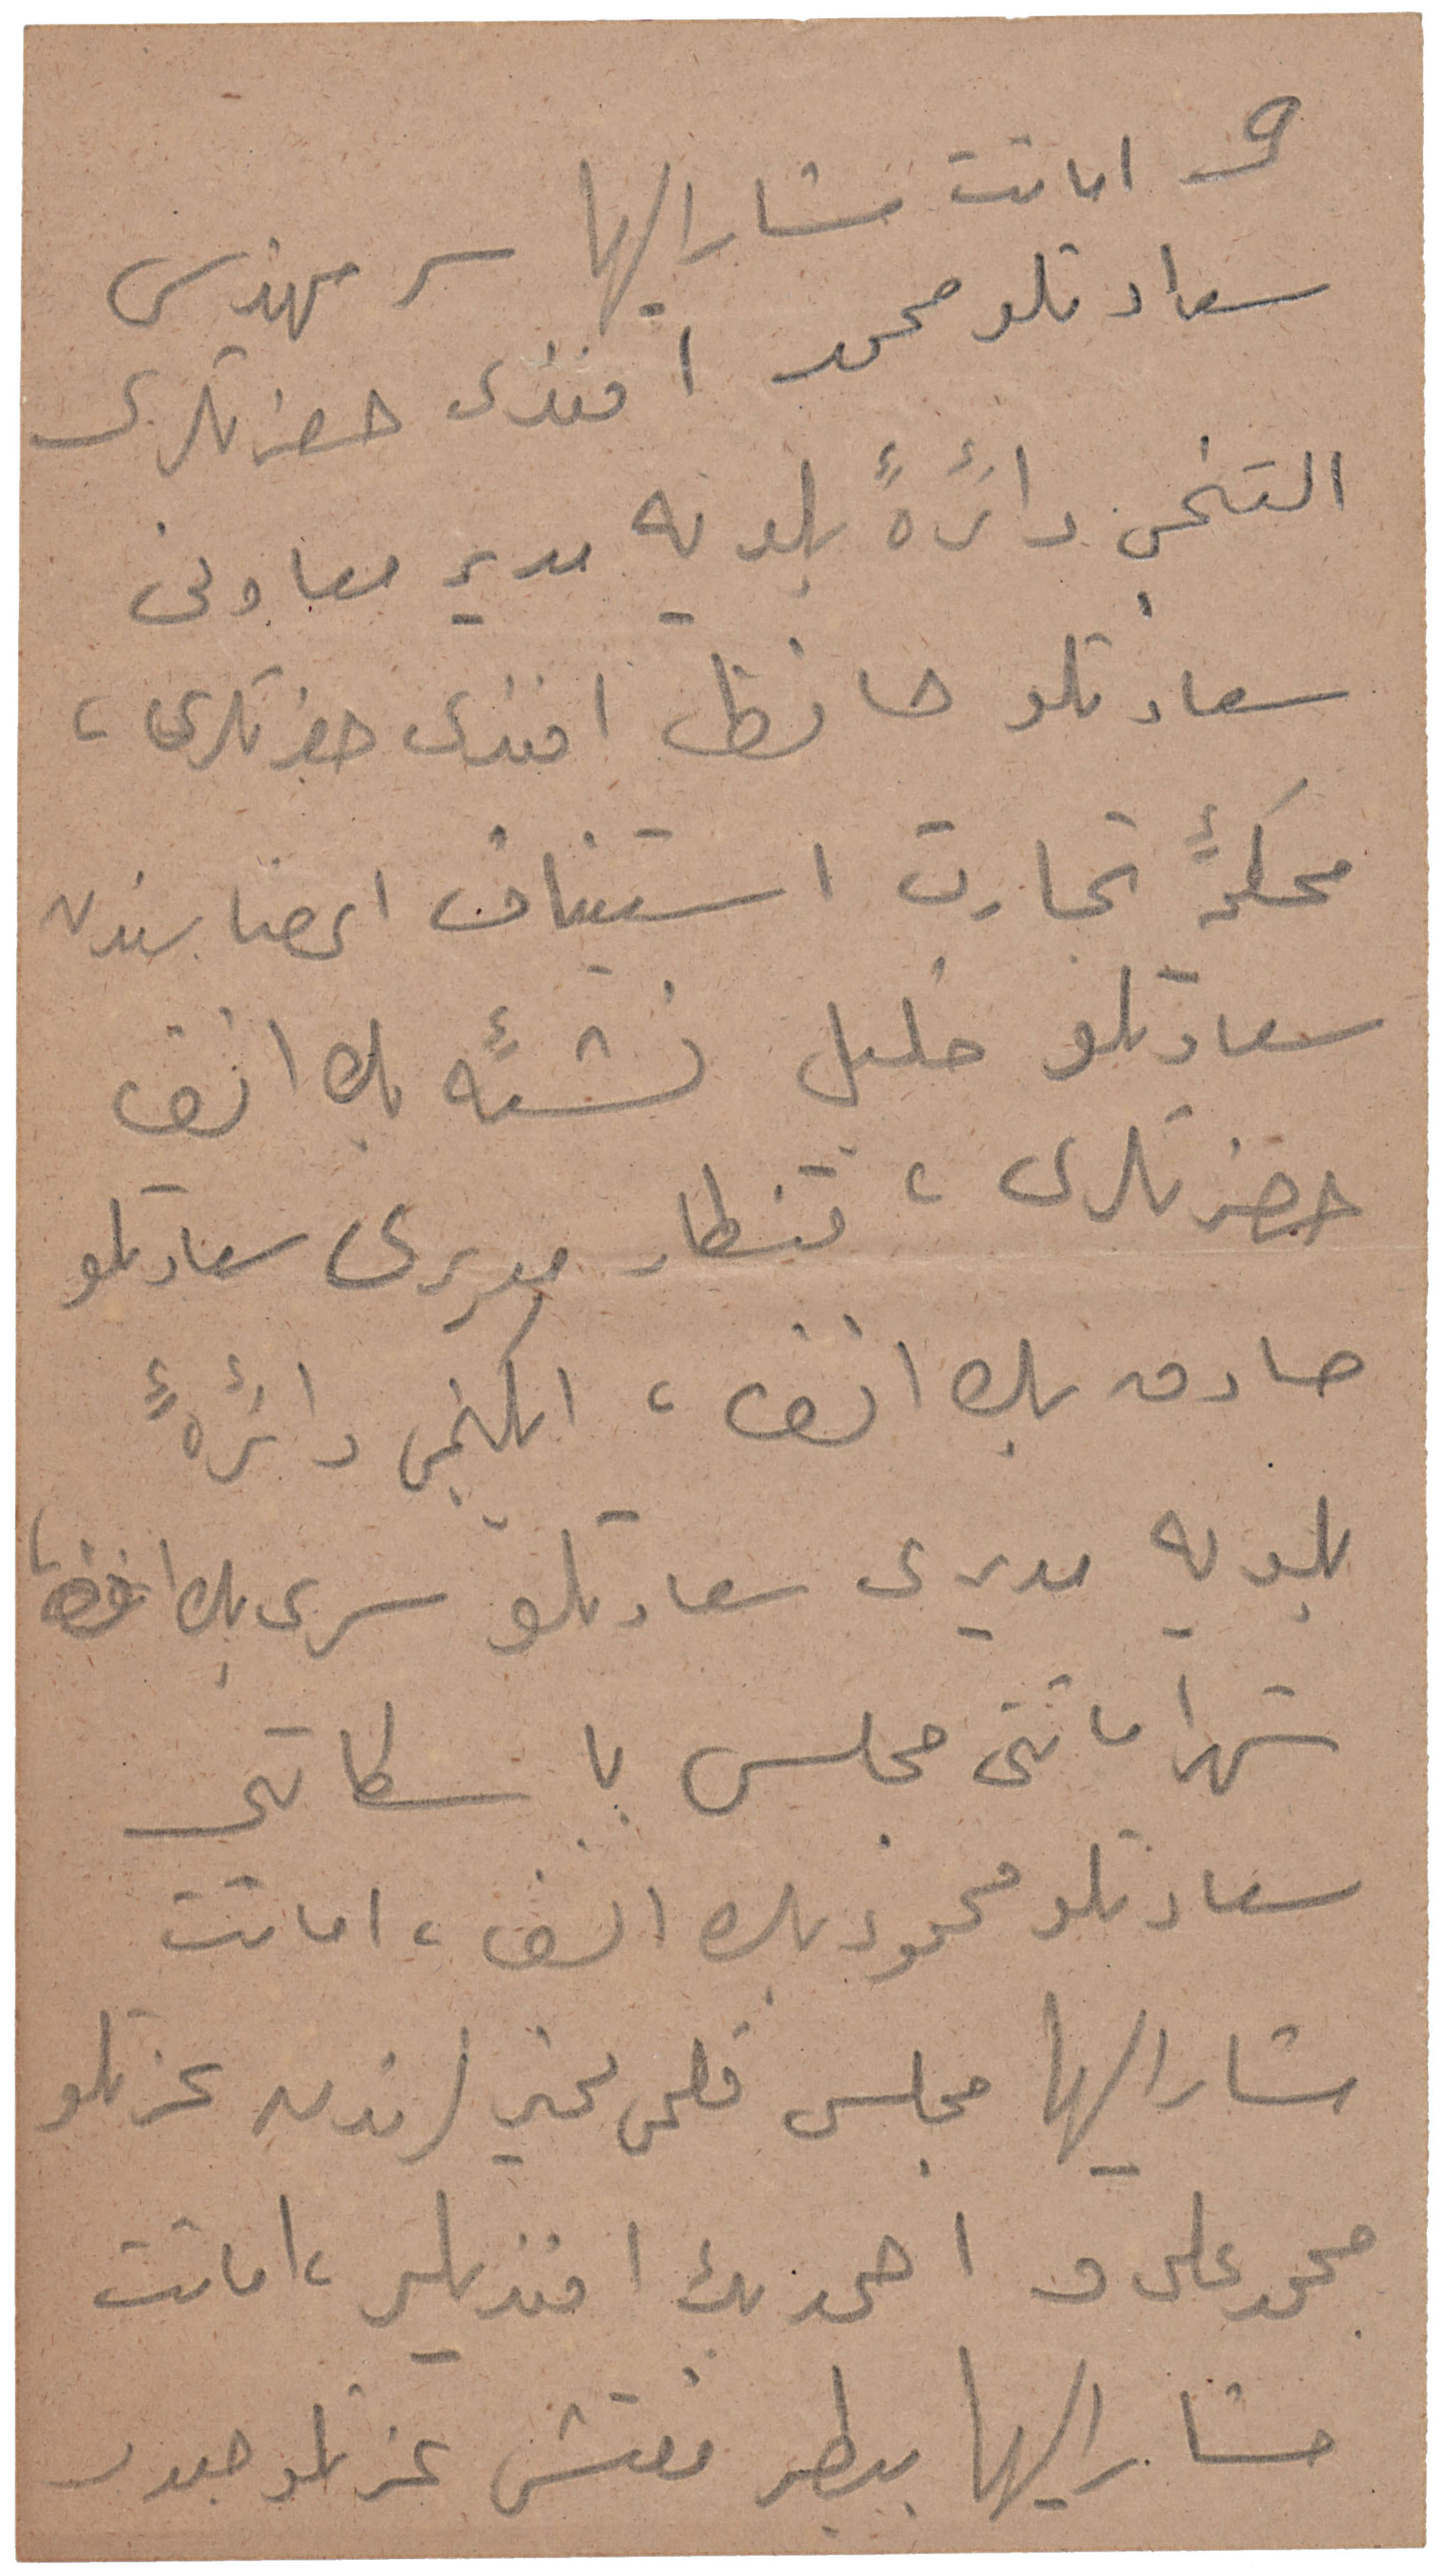 و امانت مشارالیها سر مهندسی
سعادتلو محمد افندی حضرتلری
التنجی دائرهٔ بلدیه مدیر معاونی
سعادتلو حافظ افندی حضرتلری،
محکمهٔ تجارت استیناف اعضاسندن
سعادتلو خلیل نشئه بك افندی
حضرتلری، تنظار مدیری سعادتلو
صادق بك افندی، ایکنجی دائرهٔ
بلدیه مدیری سعادتلو سری بك افندی،
شهرامانتی مجلس باشکاتبی
سعادتلو محمود بك افندی، امانت
مشارالیها مجلس قلمی لرندن عزتلو
محمد علی و احمد بك افندیلر، امانت
مشارالیها بیطر مفتشی عزتلو